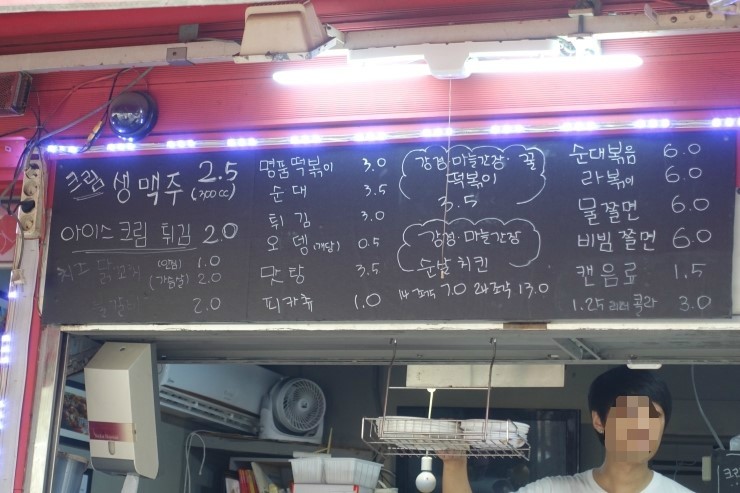 크림 생맥주 2.5
(300cc)
아이스크림 튀김 2.0
치즈 닭꼬치 (안심) 1.0
(가슴살) 2.0
2.0
명품떡볶이 3.0
순대 3.5
튀김 3.0
오뎅(개당) 0.5
맛탕 3.5
피카츄 1.0
강경·마늘간장·꿀
떡볶이
3.5
강경·마늘간장
순살 치킨
14조각 7.0 24조각 13.0
순대볶음 6.0
라볶이 6.0
물쫄면 6.0
비빔쫄면 6.0
캔음료 1.5
1.25리터 콜라 3.0